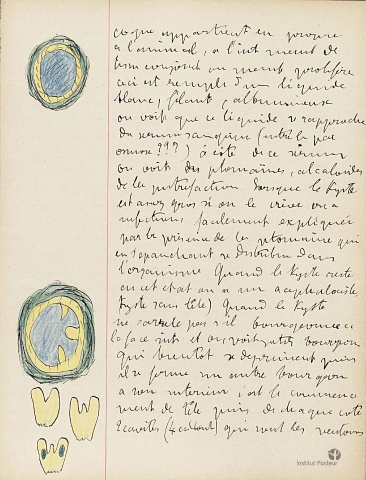 coque appartient en propre
a l'animal, a l'int ment de
tissu conjonctif ment prolifère
ceci est rempli d'un liquide
blanc, filant, albumineux
on voit que ce liquide se rapproche
du serum sanguin (entre la par
osmose ???) à côté de ce sérum
on voit des ptomaïnes, alcaloïdes
de la putréfaction lorsque le Kyste
est assez gros si on le crève on a
infections facilement expliquée
par la présence de la ptomaine qui
en s'épanchant se distribue dans
l'organisme Quand le Kyste reste
en cet état on a un acephalociste
Kyste sans tête) Quand le Kyste
ne s'arrête pas s'il bourgeonne a
la face int et on voit petits bourgeons
qui bientot se depriment puis
il se forme un autre bourgeon
a son interieur c'est le commence
ment de tête puis de chaque coté
2 cavités (4 en tout) qui sont les ventouses
Institut Pasteur